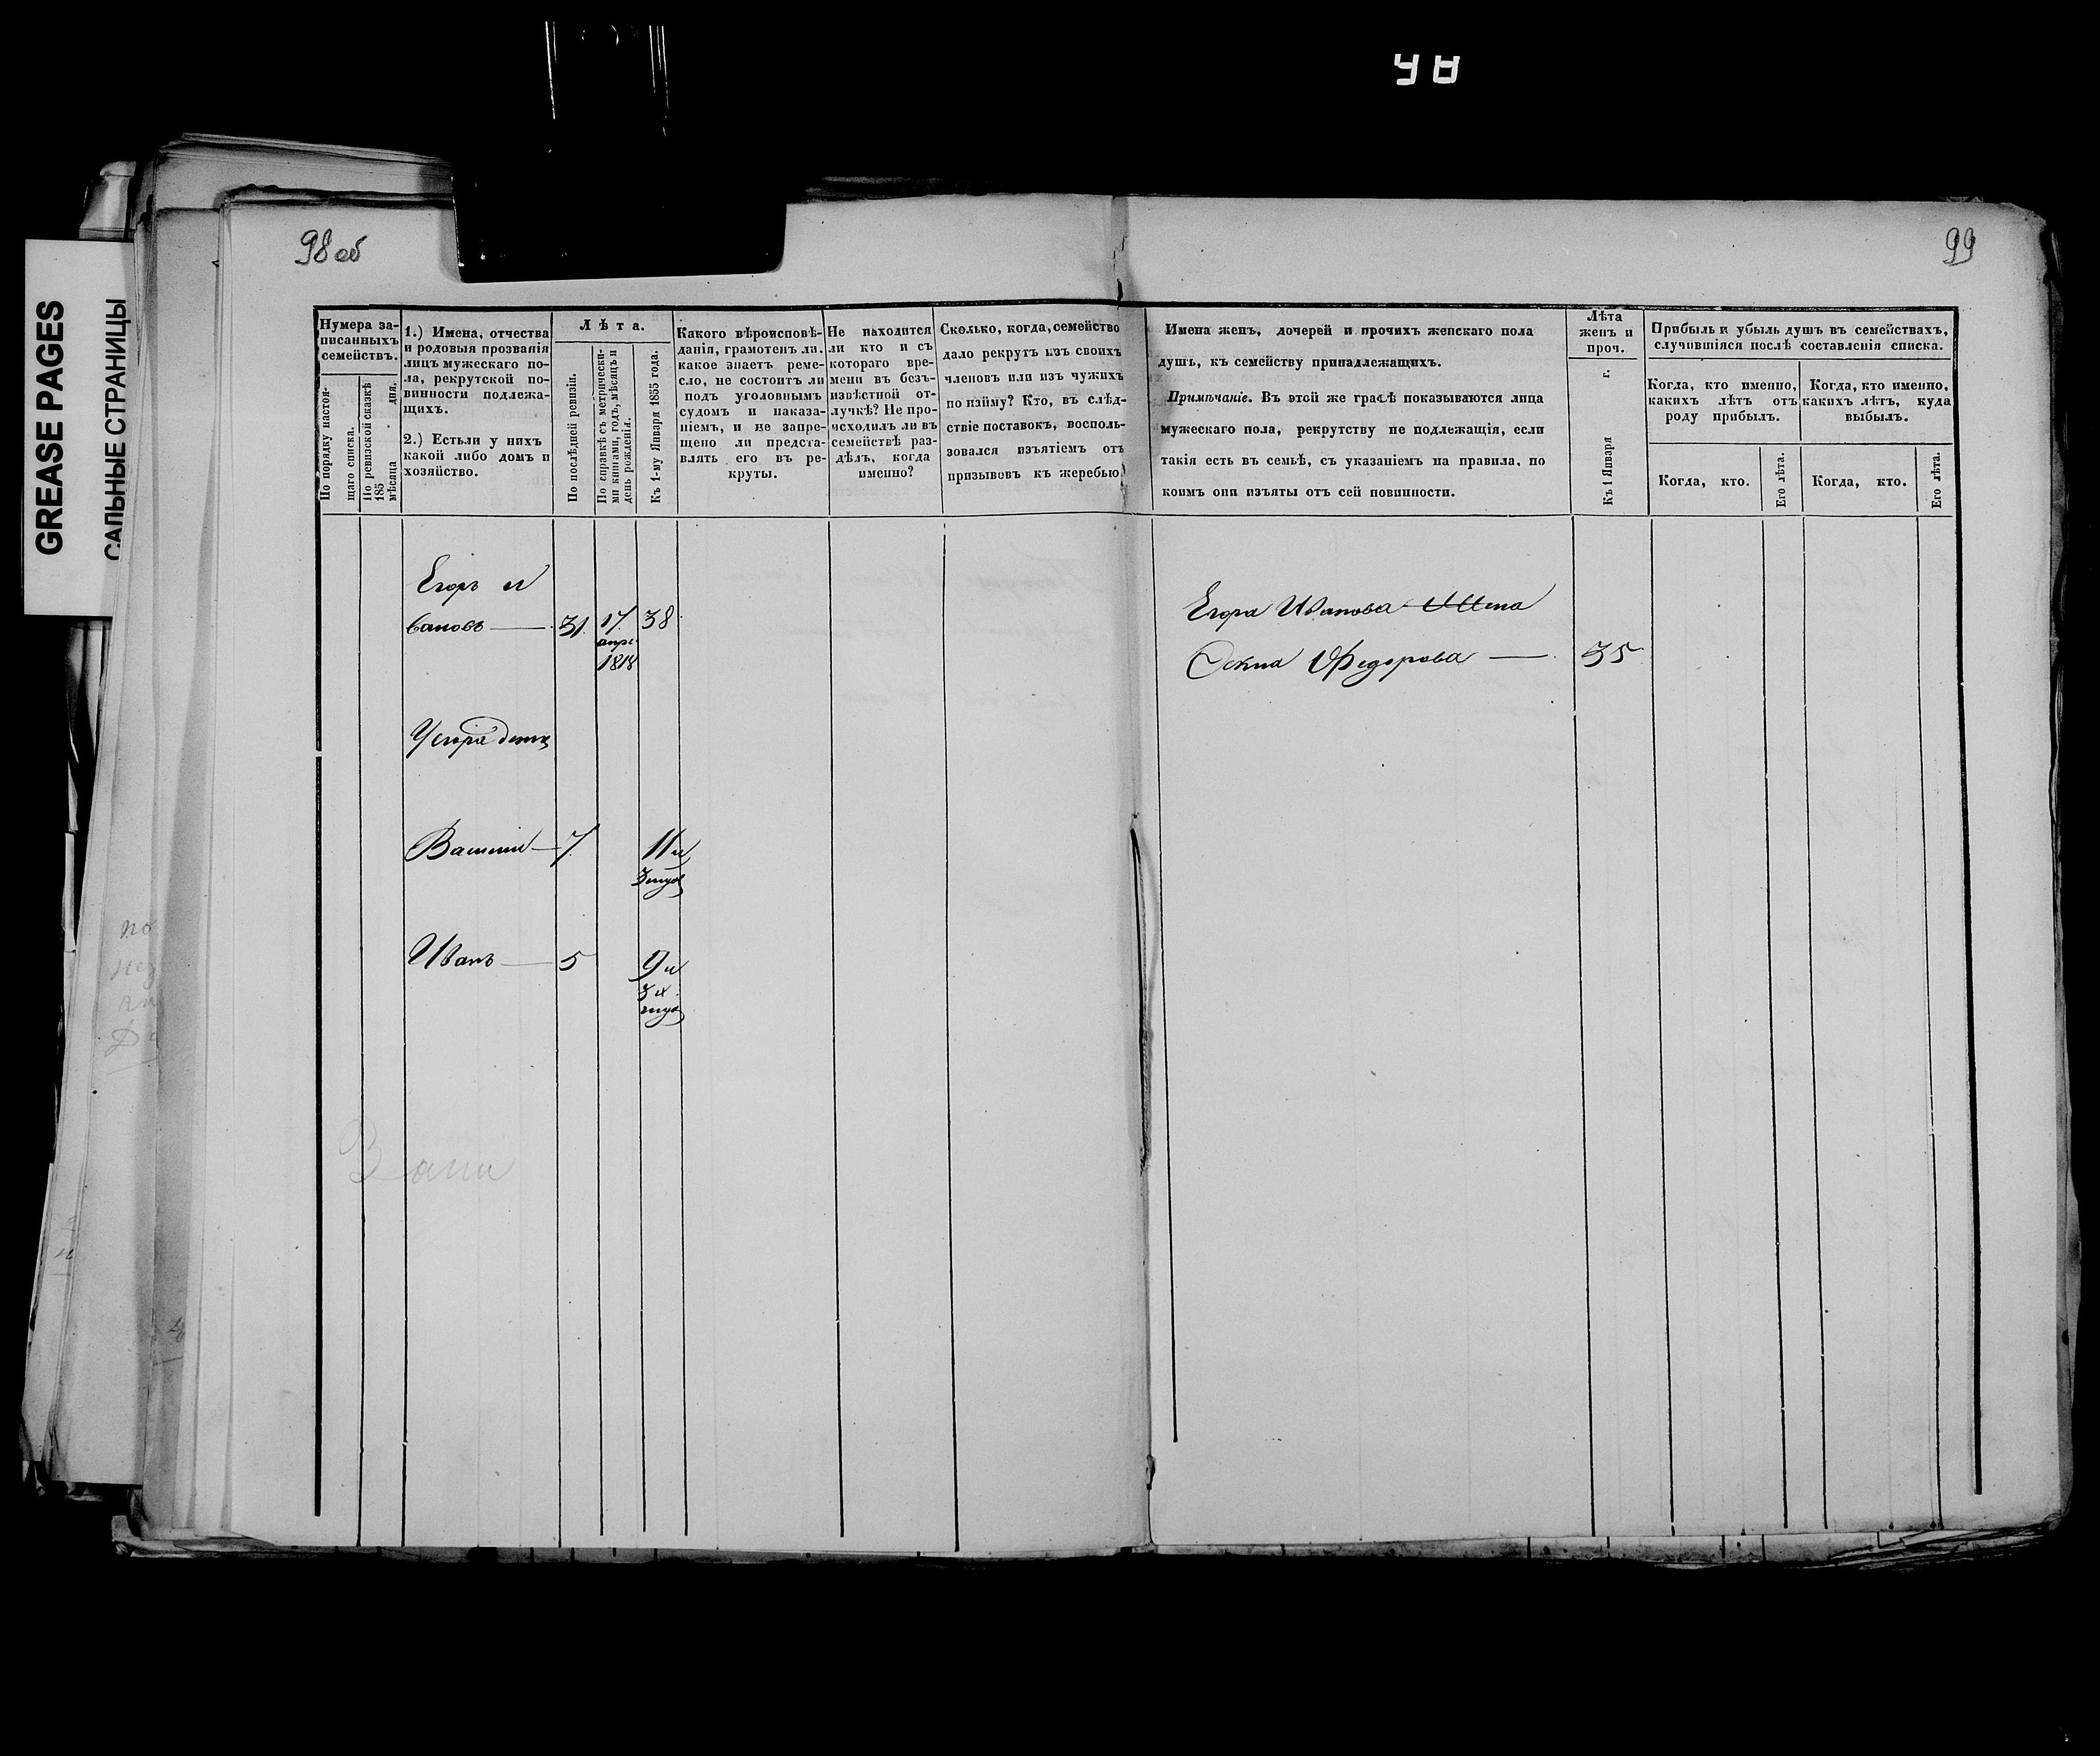 98 об
99
GREASE PAGES
САЛЬНЫЕ СТРАНИЦЫ
Нумера за-
писанныхъ
семействъ.
По порядку настоя-
щаго списка.
По ревизской сказкѣ
185 дня.
мѣсяца
1.) Имена, отчества
и родовыя прозванія
лицъ мужескаго по-
ла, рекрутской по-
винности подлежа-
щихъ.
2.) Естьли у нихъ
какой либо домъ и
хозяйство.
Лѣта.
По послѣдней ревизіи.
По справкѣ съ метрически-
ми книгами, годъ, мѣсяцъ и
день рожденія.
Къ 1-му Января 1855 года.
Какого вѣроисповѣ-
данія, грамотенъ ли,
какое знаетъ реме-
сло, не состоитъ ли
подъ уголовнымъ
судомъ и наказа-
ніемъ, и не запре-
щено ли предста-
влять его въ ре-
круты.
Не находится
ли кто и съ
котораго вре-
мени въ безъ-
извѣстной от-
лучкѣ? Не про-
исходилъ ли въ
семействѣ раз-
дѣлъ, когда
именно?
Сколько, когда, семейство
дало рекрутъ изъ своихъ
членовъ или изъ чужихъ
по найму? Кто, въ слѣд-
ствіе поставокъ, восполь-
зовался изъятіемъ отъ
призывовъ къ жеребью
Имена женъ, дочерей и прочихъ женскаго пола
душъ, къ семейству принадлежащихъ.
Примѣчаніе. Въ этой же графѣ показываются лица
мужескаго пола, рекрутству не подлежащія, если
такія есть въ семьѣ, съ указаніемъ на правила, по
коимъ они изъяты отъ сей повинности.
Лѣта
женъ и
проч.
Къ 1 Января г.
Прибыль и убыль душъ въ семействахъ,
случившіяся послѣ составленія списка.
Когда, кто именно,
какихъ лѣтъ отъ
роду прибылъ.
Когда, кто именно,
какихъ лѣтъ, куда
выбылъ.
Когда, кто.
Его лѣта.
Когда, кто.
Его лѣта.
Егоръ И
вановъ 31. 17. апре 1818 38
У егора дети
Василий 7
11 и
3 мца
Иванъ 5
9 и
3 х
мца
Егора Иванова жена
Федорова 35